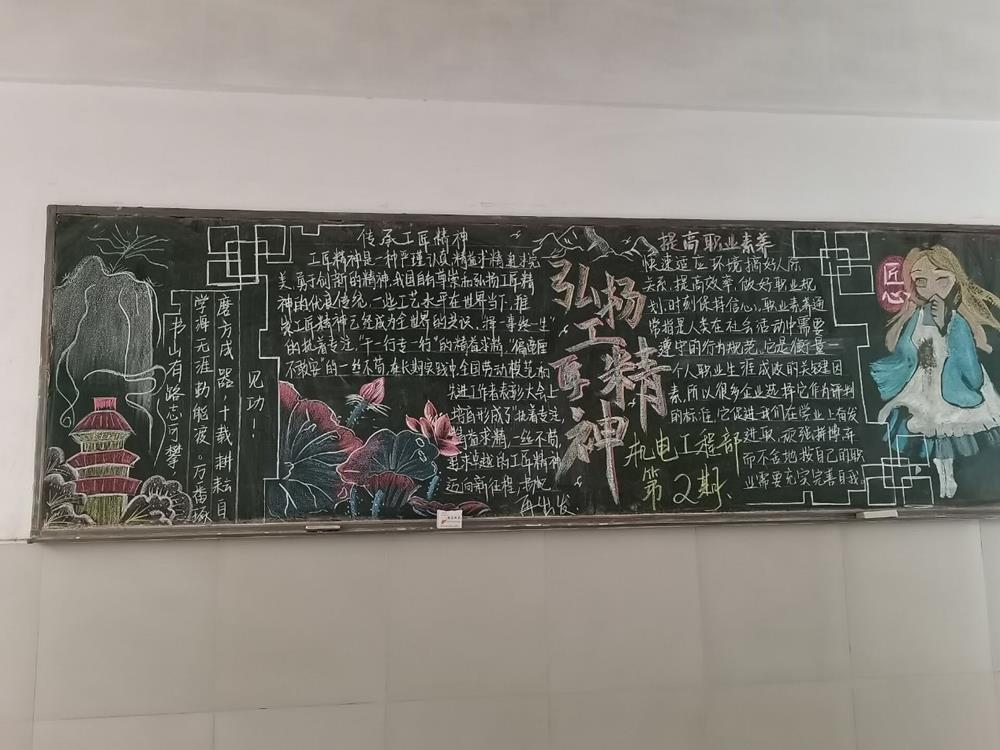 书山有路志可攀，
学海无涯勤能渡。万番琢
磨方成器，十载耕耘自
见功！
传承工匠精神
工匠精神是一种严谨认真精益求精追求完
美勇于创新的精神。我国自有尊崇和弘扬工匠精
神的优良传统，一些工艺水平在世界当下，推
崇工匠精神已经成为全世界的共识，择一事终一生"
的执着专注"干一行专一行"的精益求精，"偏毫厘
不敢安"的一丝不苟，在长期实践中，全国劳动模范和
先进工作者表彰大会上
培育形成了"执着专注，
精益求精，一丝不苟，
追求卓越的工匠精神
迈向新征程，
再出发
弘扬
工匠
精神
机电工程部
第2期、
提高职业素养
快速适应环境搞好人际
关系，提高效率，做好职业规
划，时刻保持信心，职业素养通
常指是人类在社会活动中需要
遵守的行为规范，它是衡量一
个人职业生涯成败的关键因
素，所以很多企业选择它作为评判
的标准，它促进我们在学业上奋发
进取，顽强拼搏奔
而不舍地按自己的职
业需要充实完善自我。
匠
心